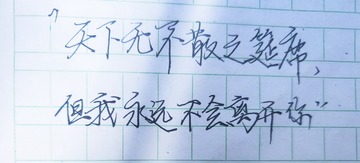 「天下无不散之筵席,
但我永远不会离开你”